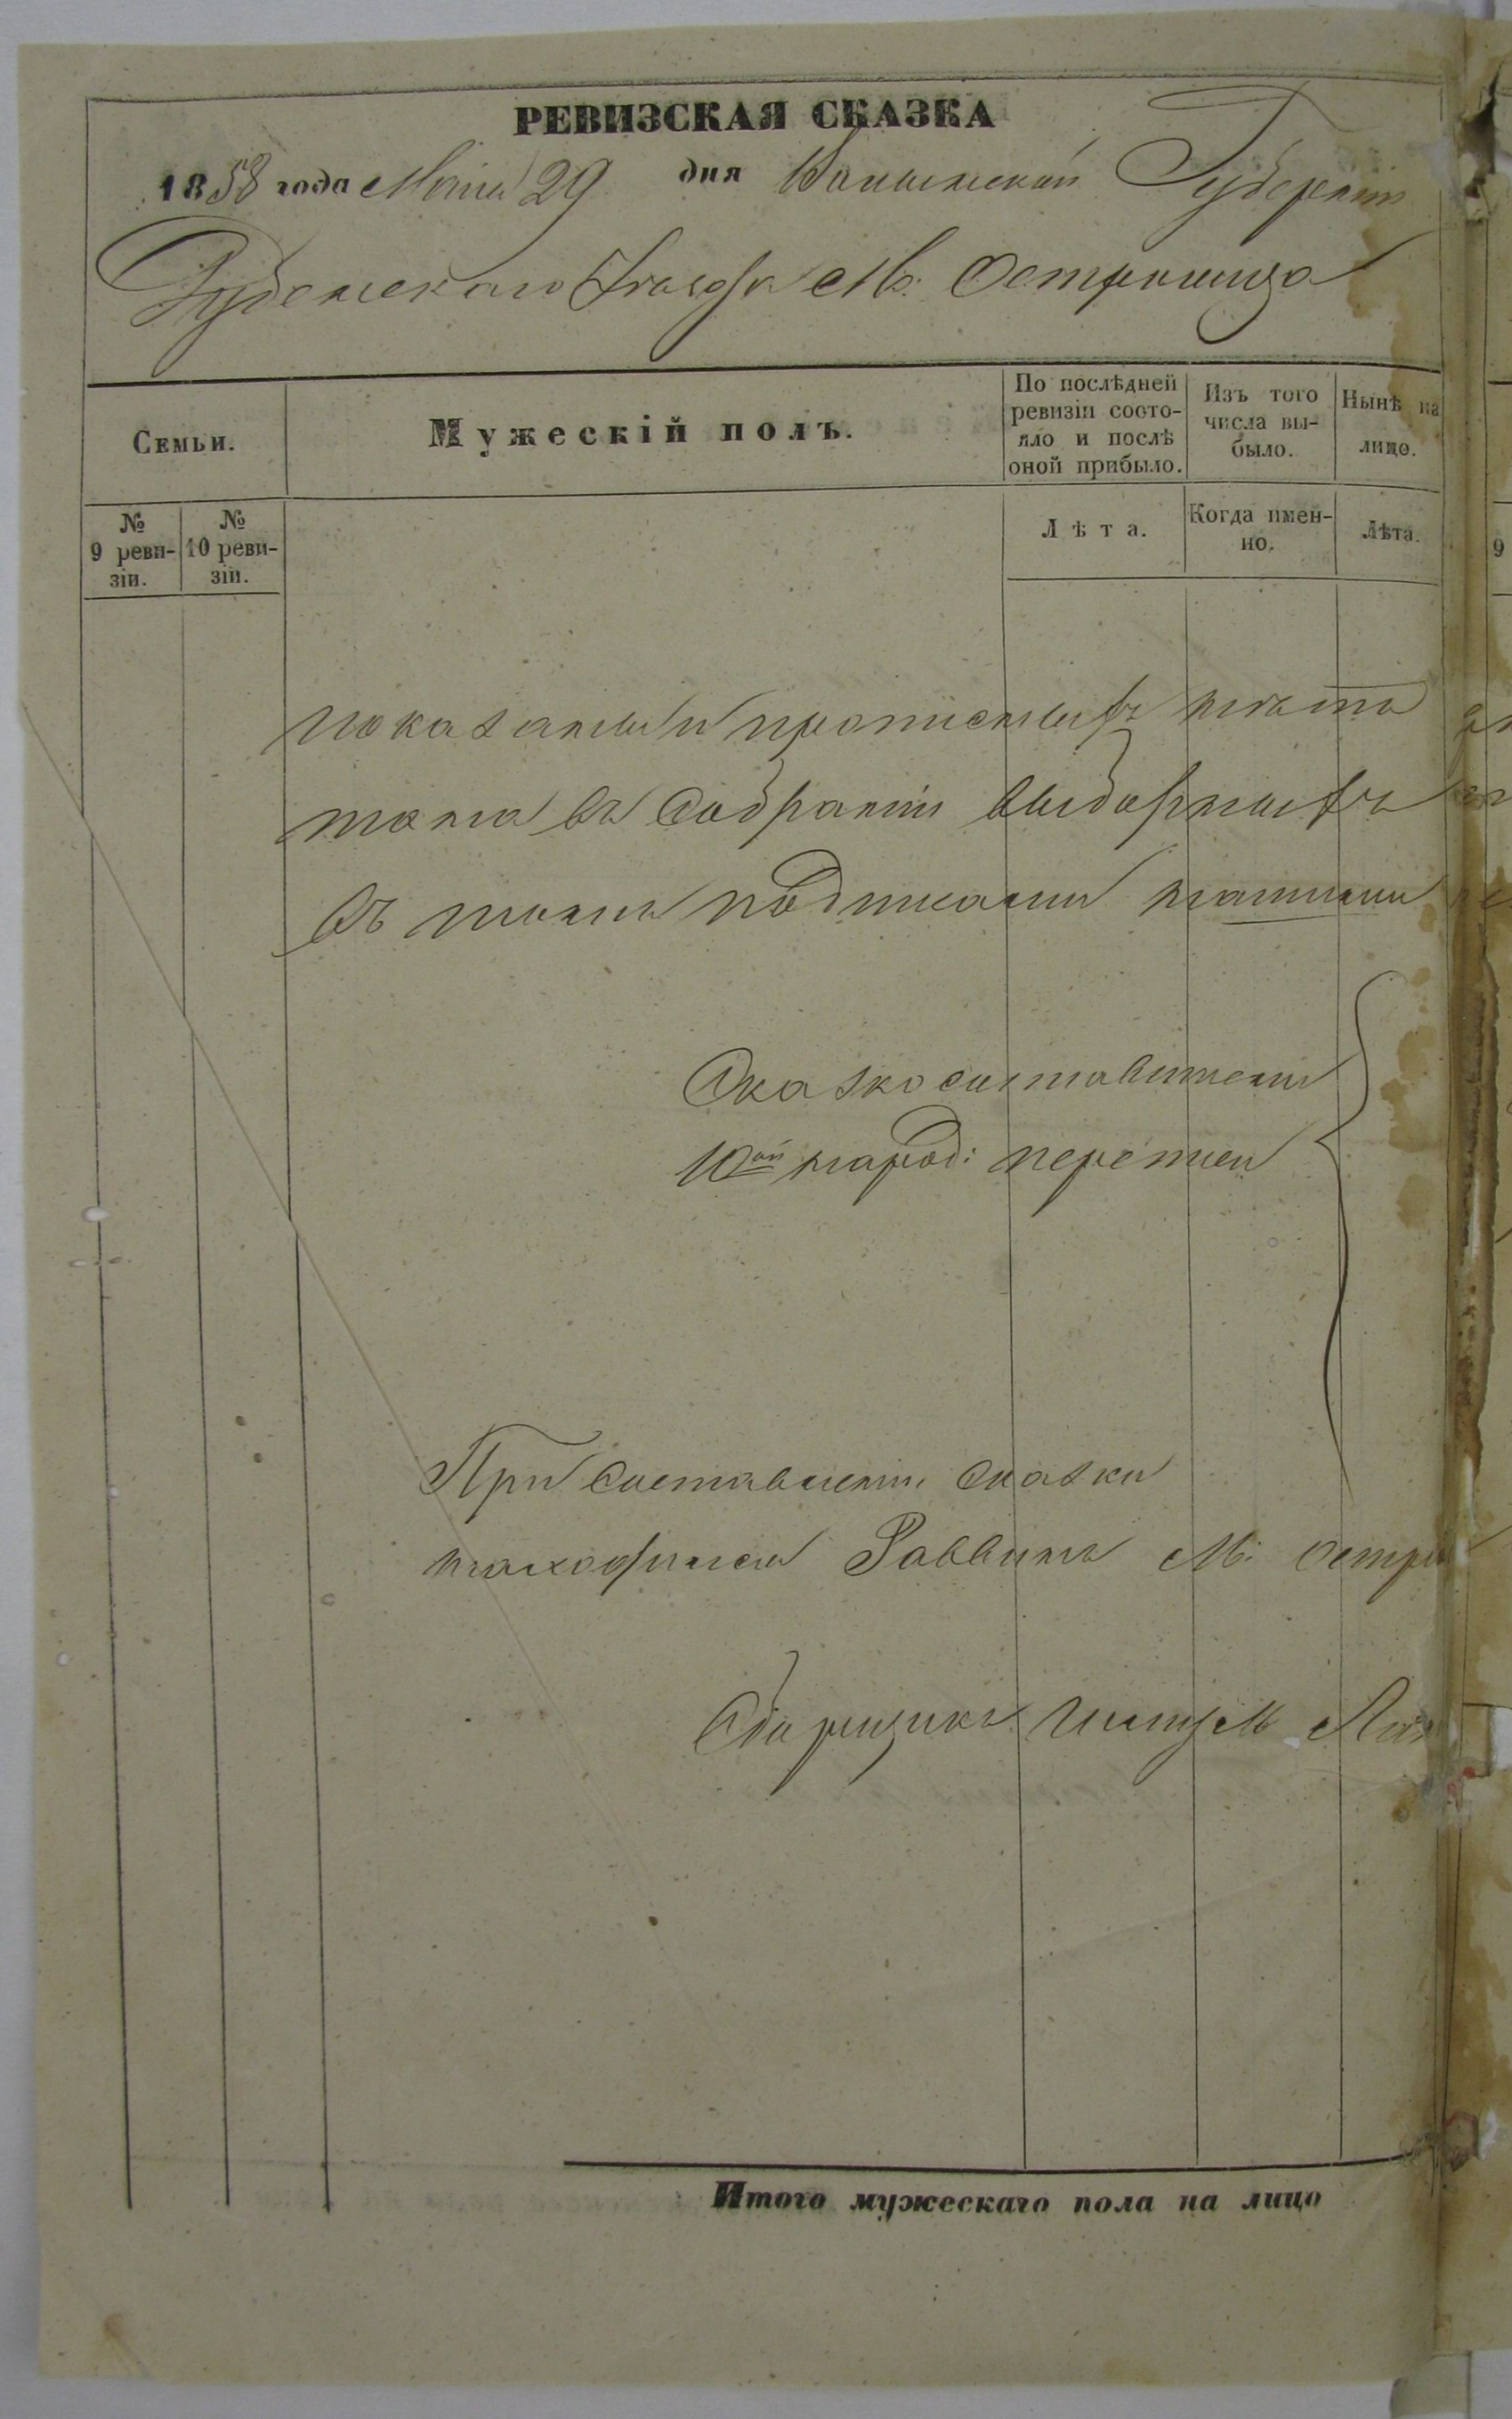 РЕВИЗСКАЯ СКАЗКА
1858 года Маія 29 дня Волынской Губерніи
Дубенскаго Уѣзда М: Остропица
Семьи.
Мужескій полъ.
По послѣдней ревизіи состо-
яло и послѣ
оной прибыло.
Изъ того
числа вы-
было.
Нынѣ на
лицо.
№
9 реви-
зіи.
№
10 реви-
зіи.
Лѣта.
Когда имен-
но.
Лѣта.
9
показаны и прописныхъ нѣтъ
въ собраніи выборныхъ
въ томъ подписами нашими
Сказкосоставители
10ой народ: переписи
При составленіи сказки
находился Раввинъ М: Остро
Сборщикъ
Итого мужескаго пола на лицо